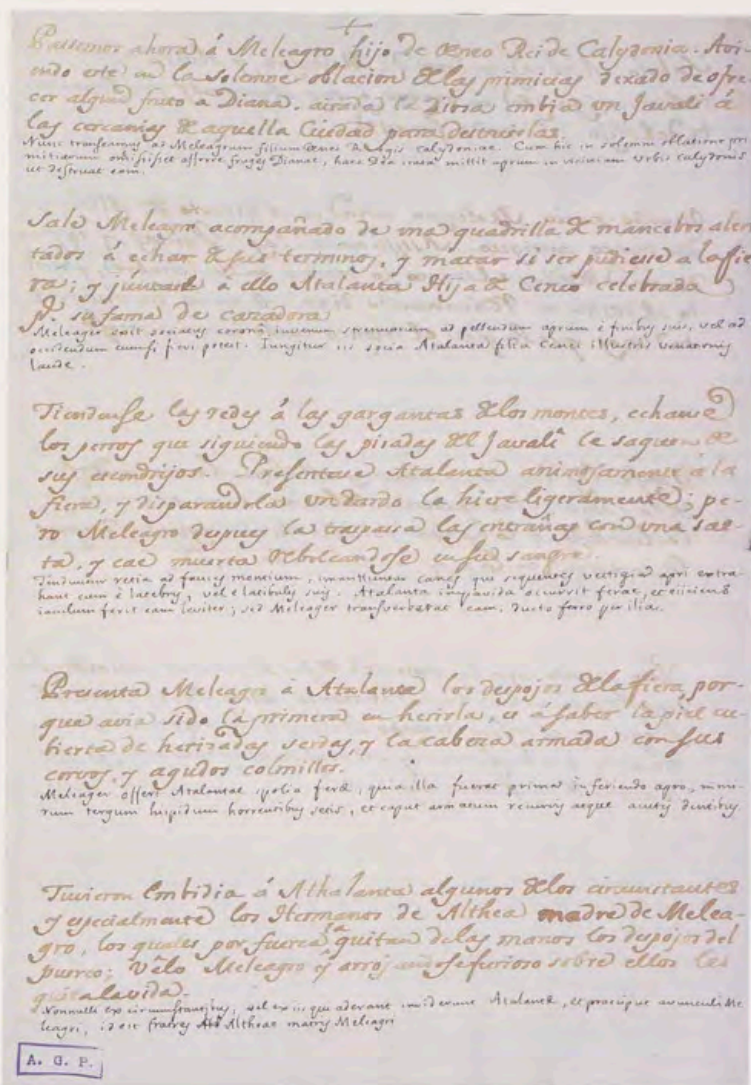 Passemos ahora á Meleagro hijo de Œneo Rei de Calydonia. Avi-
endo este en la solemne oblacion de las primicias dexado de ofre
cer algun fruto a Diana, airada la Diosa embia un Javalí á
las cercanias de aquella Ciudad para destruirlas.
Nunc transeamus ad Meleagrum filium Œnei Regis Calydoniae. Cum hic in solemni oblatione pri
mitiarum omisisset afferre fruges Dianae, haec Dea irata mittit aprum in viciniam Urbis Calydonis
ut destruat eam.
Sale Meleagro acompañado de una quadrilla de mancebos alen
tados á echar de sus terminos, y matar si ser pudiesse a la fie
ra; y júntase á ello Atalanta Hija de Ceneo celebrada
pr. su fama de cazadora
Meleager exit sociatus corona iuvenum strenuorum ad pellendum aprum è finibus suis, vel ad
occidendum eum si fieri potest. Iungitur iis socia Atalanta filia Cenei illustris venationis
laude.
Tiendense las redes á las gargantas de los montes, echanse
los perros que siguiendo las pisadas del Javalí le saquen de
sus escondrijos. Presentase Atalanta animosamente á la
fiera, y disparandola un dardo la hiere ligeramente; pe-
ro Meleagro despues la traspassa las entrañas con una sae-
ta, y cae muerta rebolcandose en su sangre.
Tenduntur retia ad fauces montium, immittuntur canes qui sequentes vestigia apri extra
hant eum è latebris, vel è latibulis suis. Atalanta impavida occurrit ferae, et eiiciens
iaculum ferit eam leviter; sed Meleager transverberat eam, ducto ferro per ilia.
Presenta Meleagro á Atalanta los despojos de la fiera, por-
que avia sido la primera en herirla, es á saber la piel cu-
bierta de herizadas serdas, y la cabeza armada con sus
corvos, y agudos colmillos.
Meleager offert Atalantae spolia ferae, quia illa fuerat prima in feriendo apro, nimi
rum tergum hispidum horrentibus setis, et caput armatum recurvis aeque acutis dentibus
Tuvieron Embidia á Athalanta algunos de los circunstantes
y especialmente los Hermanos de Althea madre de Melea-
gro, los quales por fuerza la quitan de las manos los despojos del
puerco; Vêlo Meleagro y arrojandose furioso sobre ellos les
quita la vida.
Nonnulli ex circumstantibus, vel ex iis qui aderant inviderunt Atalantae, et praecipue avunculi Me
leagri, id est fratres Altheae matris Meleagri
A. G. P.